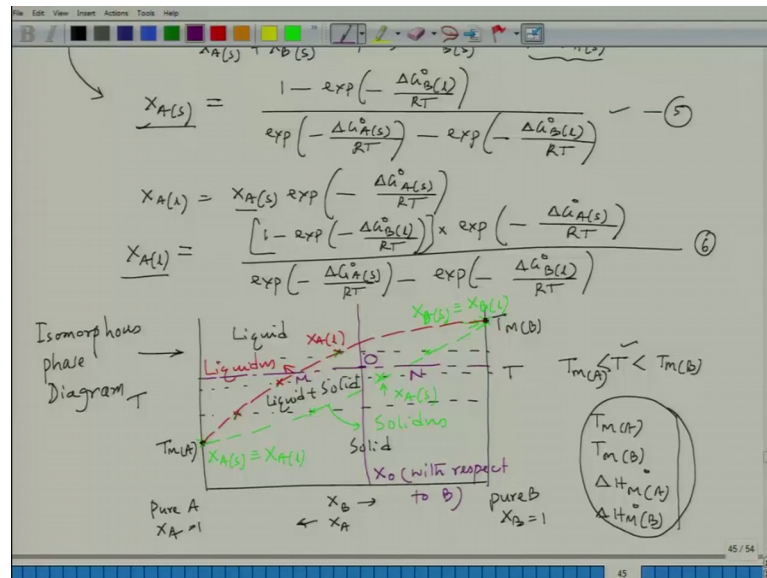 File Edit View Insert Actions Tools Help
B I
X_A(s) =
1 - exp(-ΔG°_B(l)/RT)
exp(-ΔG°_A(s)/RT) - exp(-ΔG°_B(l)/RT)
- ⑤
X_A(l) = X_A(s) exp(-ΔG°_A(s)/RT)
X_A(l) =
[1 - exp(-ΔG°_B(l)/RT)] × exp(-ΔG°_A(s)/RT)
exp(-ΔG°_A(s)/RT) - exp(-ΔG°_B(l)/RT)
⑥
Isomorphous
phase
Diagram
T
Liquid
X_A(l)
X_B(s) ≡ X_B(l)
T_M(B)
Liquidus
M
O
N
T
T_M(A) < T < T_M(B)
Liquid + Solid
X_A(s)
Solidus
T_M(A)
X_A(s) ≡ X_A(l)
Solid
X_0 (with respect
to B)
T_M(A)
T_M(B)
ΔH°_M(A)
ΔH°_M(B)
pure A
X_A = 1
X_B →
← X_A
pure B
X_B = 1
45 / 54
45